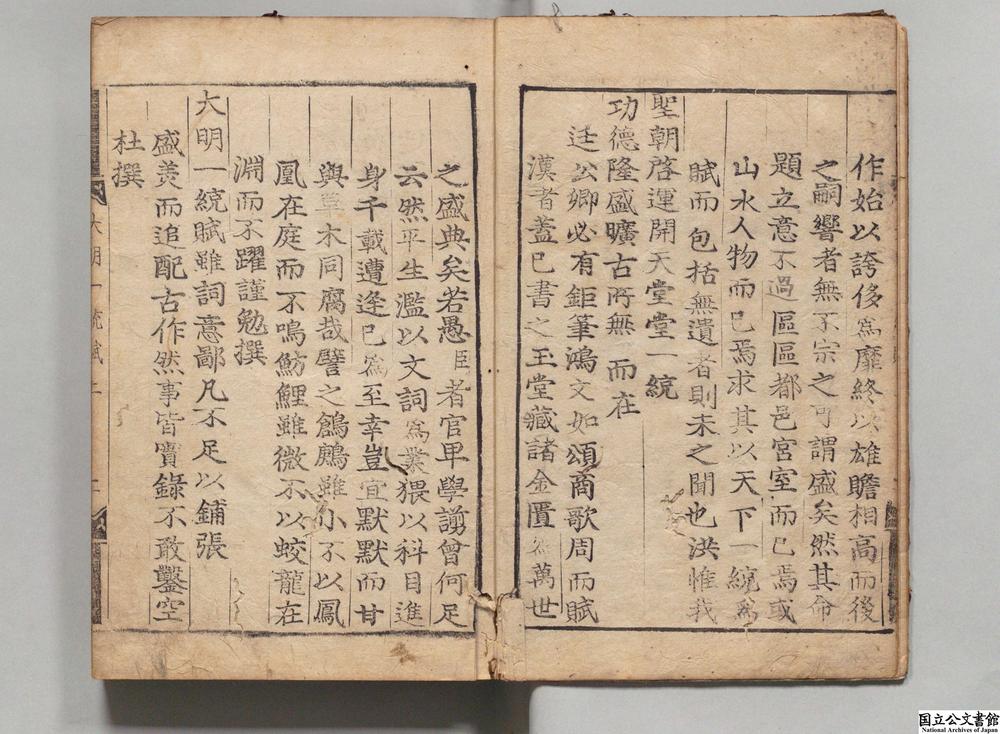 作始以誇侈為靡終以雄贍相高而後
之嗣響者無不宗之可謂盛矣然其命
題立意不過區區都邑宮室而已焉或
山水人物而已焉求其以天下一統為
賦而包括無遺者則未之聞也洪惟我
聖朝啓運開天堂堂一統
功德隆盛曠古所無而在
廷公卿必有鉅筆鴻文如頌商歌周而賦
漢者盖已書之玉堂藏諸金匱為萬世
之盛典矣若愚臣者官卑學謭曾何足
云然平生濫以文詞為業猥以科目進
身千載遭逢已為至幸豈宜默默而甘
與草木同腐哉譬之鷦鷯雖小不以鳳
凰在庭而不鳴魴鯉雖微不以蛟龍在
淵而不躍謹勉撰
大明一統賦雖詞意鄙凡不足以鋪張
盛羙而追配古作然事皆實錄不敢鑿空
杜撰
大明一統賦
二
国立公文書館
National Archives of Japan